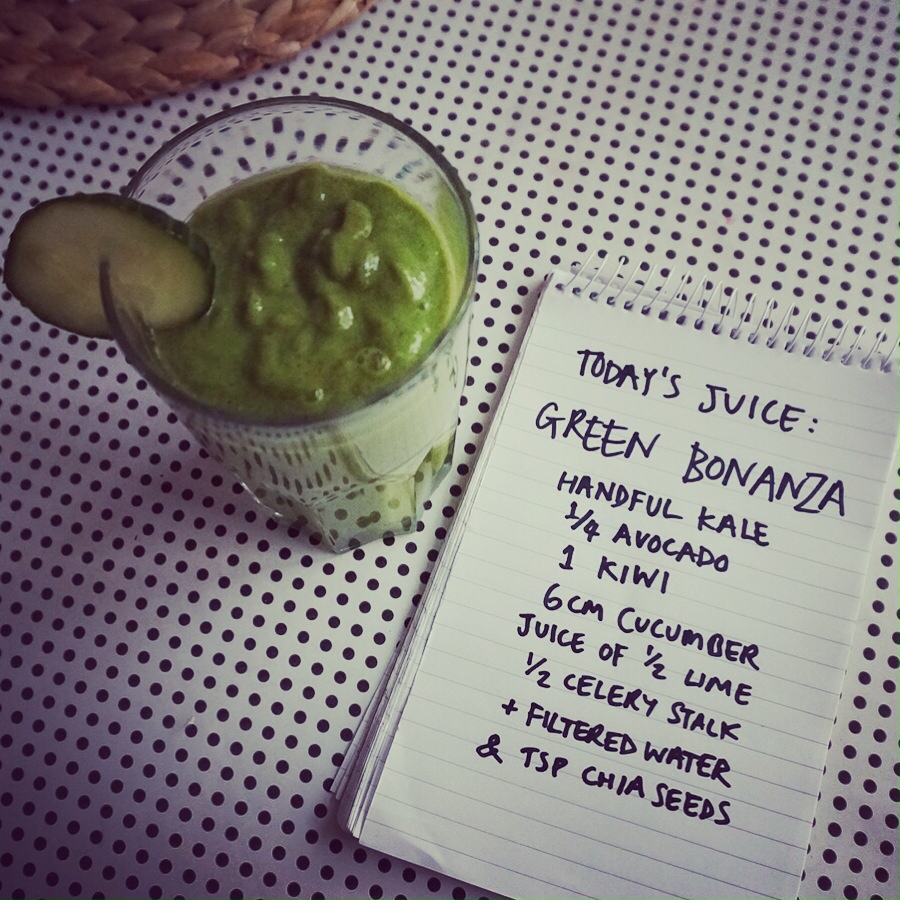 TODAY'S JUICE:
GREEN BONANZA
HANDFUL KALE
1/4 AVOCADO
1 KIWI
6CM CUCUMBER
JUICE OF 1/2 LIME
1/2 CELERY STALK
+ FILTERED WATER
& TSP CHIA SEEDS